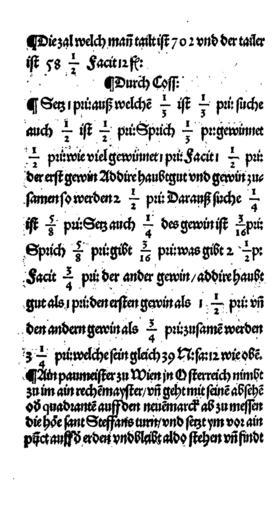 ¶Die zal welch mañ tailt ist 702 vnd der tailer
ist 58 1/2 Facit 12 fl:
¶Durch Coss:
¶Setz 1 pri: auß welchē 1/3 ist 1/3 pri: suche
auch 1/2 ist 1/2 pri: Sprich 1/3 pri: gewinnet
1/2 pri: wie viel gewinnet 1 pri: Facit 1 1/2 pri:
der erst gewin Addire haubtgut vnd gewin zu-
samen so werden 2 1/2 pri: Darauß suche 1/4
ist 5/8 pri: Setz auch 1/4 des gewin ist 3/16 pri:
Sprich 5/8 pri: gibt 3/16 pri: was gibt 2 1/2 p:
Facit 3/4 pri: der ander gewin/ addire haubt
gut als 1 pri: den ersten gewin als 1 1/2 pri: vñ
den andern gewin als 3/4 pri: zusamē werden
3 1/4 pri: welche sein gleich 39 fl: fa: 12 wie obē.
¶Ain paumeister zu Wien in Osterreich nimbt
zu im ain rechēmayster/ vñ geht mit seinē absehē
oď quadrantē auff den neuēmarck ab zu messen
die höe sant Steffans turn/ vnd setzt ym vor ain
pūct auff ď erden vnd bleibt aldo stehen vñ findt